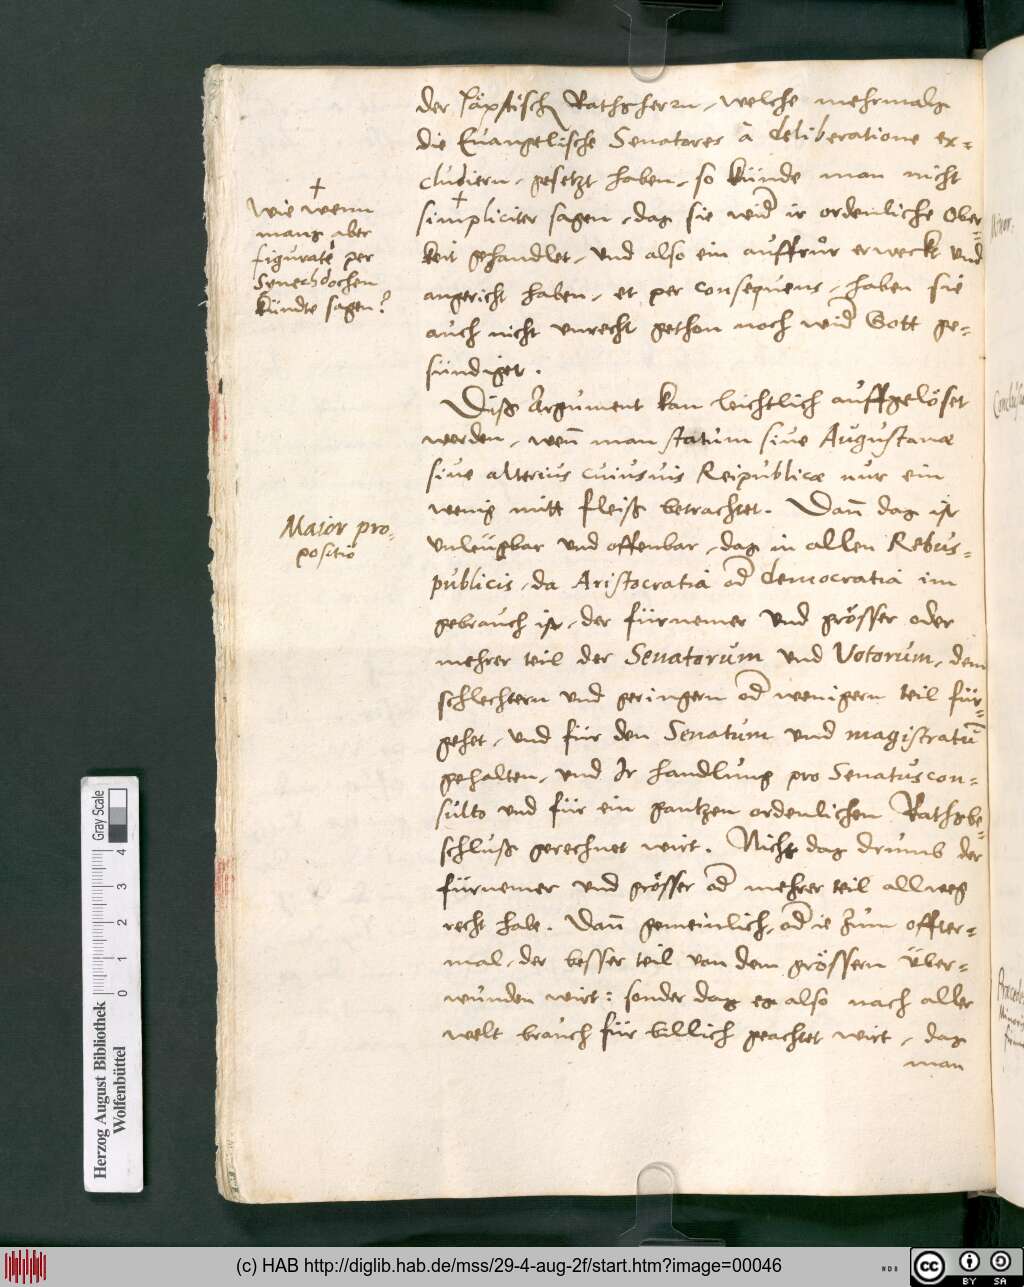 der Päpstisch Rathsherrn, welche mehrmals
die Euangelische Senatores à deliberatione ex-
cludiern, gesetzt haben, so künde man nicht
+
simpliciter sagen, das sie wid ir ordenliche Ober-
keit gehandlet, und also ein auffrůr erweckt und
angericht haben, et per consequens, haben sie
auch nicht unrecht gethon noch wid Gott ge-
sündiget.
+
Wie wenn
mans aber
figuratè per
Synechdochen
kündte sagen?
Diß Argument kan leichtlich auffgelöset
werden, wen̄ man statum siue Augustanæ
siue alterius cuiusuis Reipublicæ nur ein
wenig mitt fleiß betrachtet. Dan̄ das ist
Maior pro-
positio
unleügbar und offenbar, das in allen Rebus-
publicis, da Aristocratia od democratia im
gebrauch ist, der fürnemer und grösser oder
mehrer teil der Senatorum und Votorum, dem
schlechtern und geringern od wenigern teil für-
gehet, und für den Senatum und magistratū
gehalten, und Ir handlung pro Senatus con-
sulto und für ein gantzen ordenlichen Rathsbe-
schluß gerechnet wirt. Nicht das drumb der
fürnemer und grösser od mehrer teil allweg
recht habe. Dan̄ gemeinlich, od ie zum offter-
mal, der besser teil von dem grössern über-
wunden wirt: sonder das es also nach aller
welt brauch für billich geachtet wirt, das
man
Minor:
Gray Scale
4
3
2
1
0
Herzog August Bibliothek
Wolfenbüttel
(c) HAB http://diglib.hab.de/mss/29-4-aug-2f/start.htm?image=00046
WDB
cc
BY SA